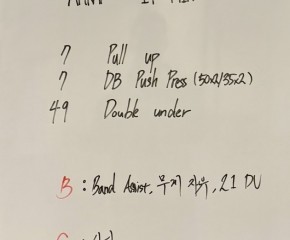 7 Pull up
7 DB Push Press (50x2/35x2)
49 Double under
B : Band Assist, 무게 자유, 21 DU